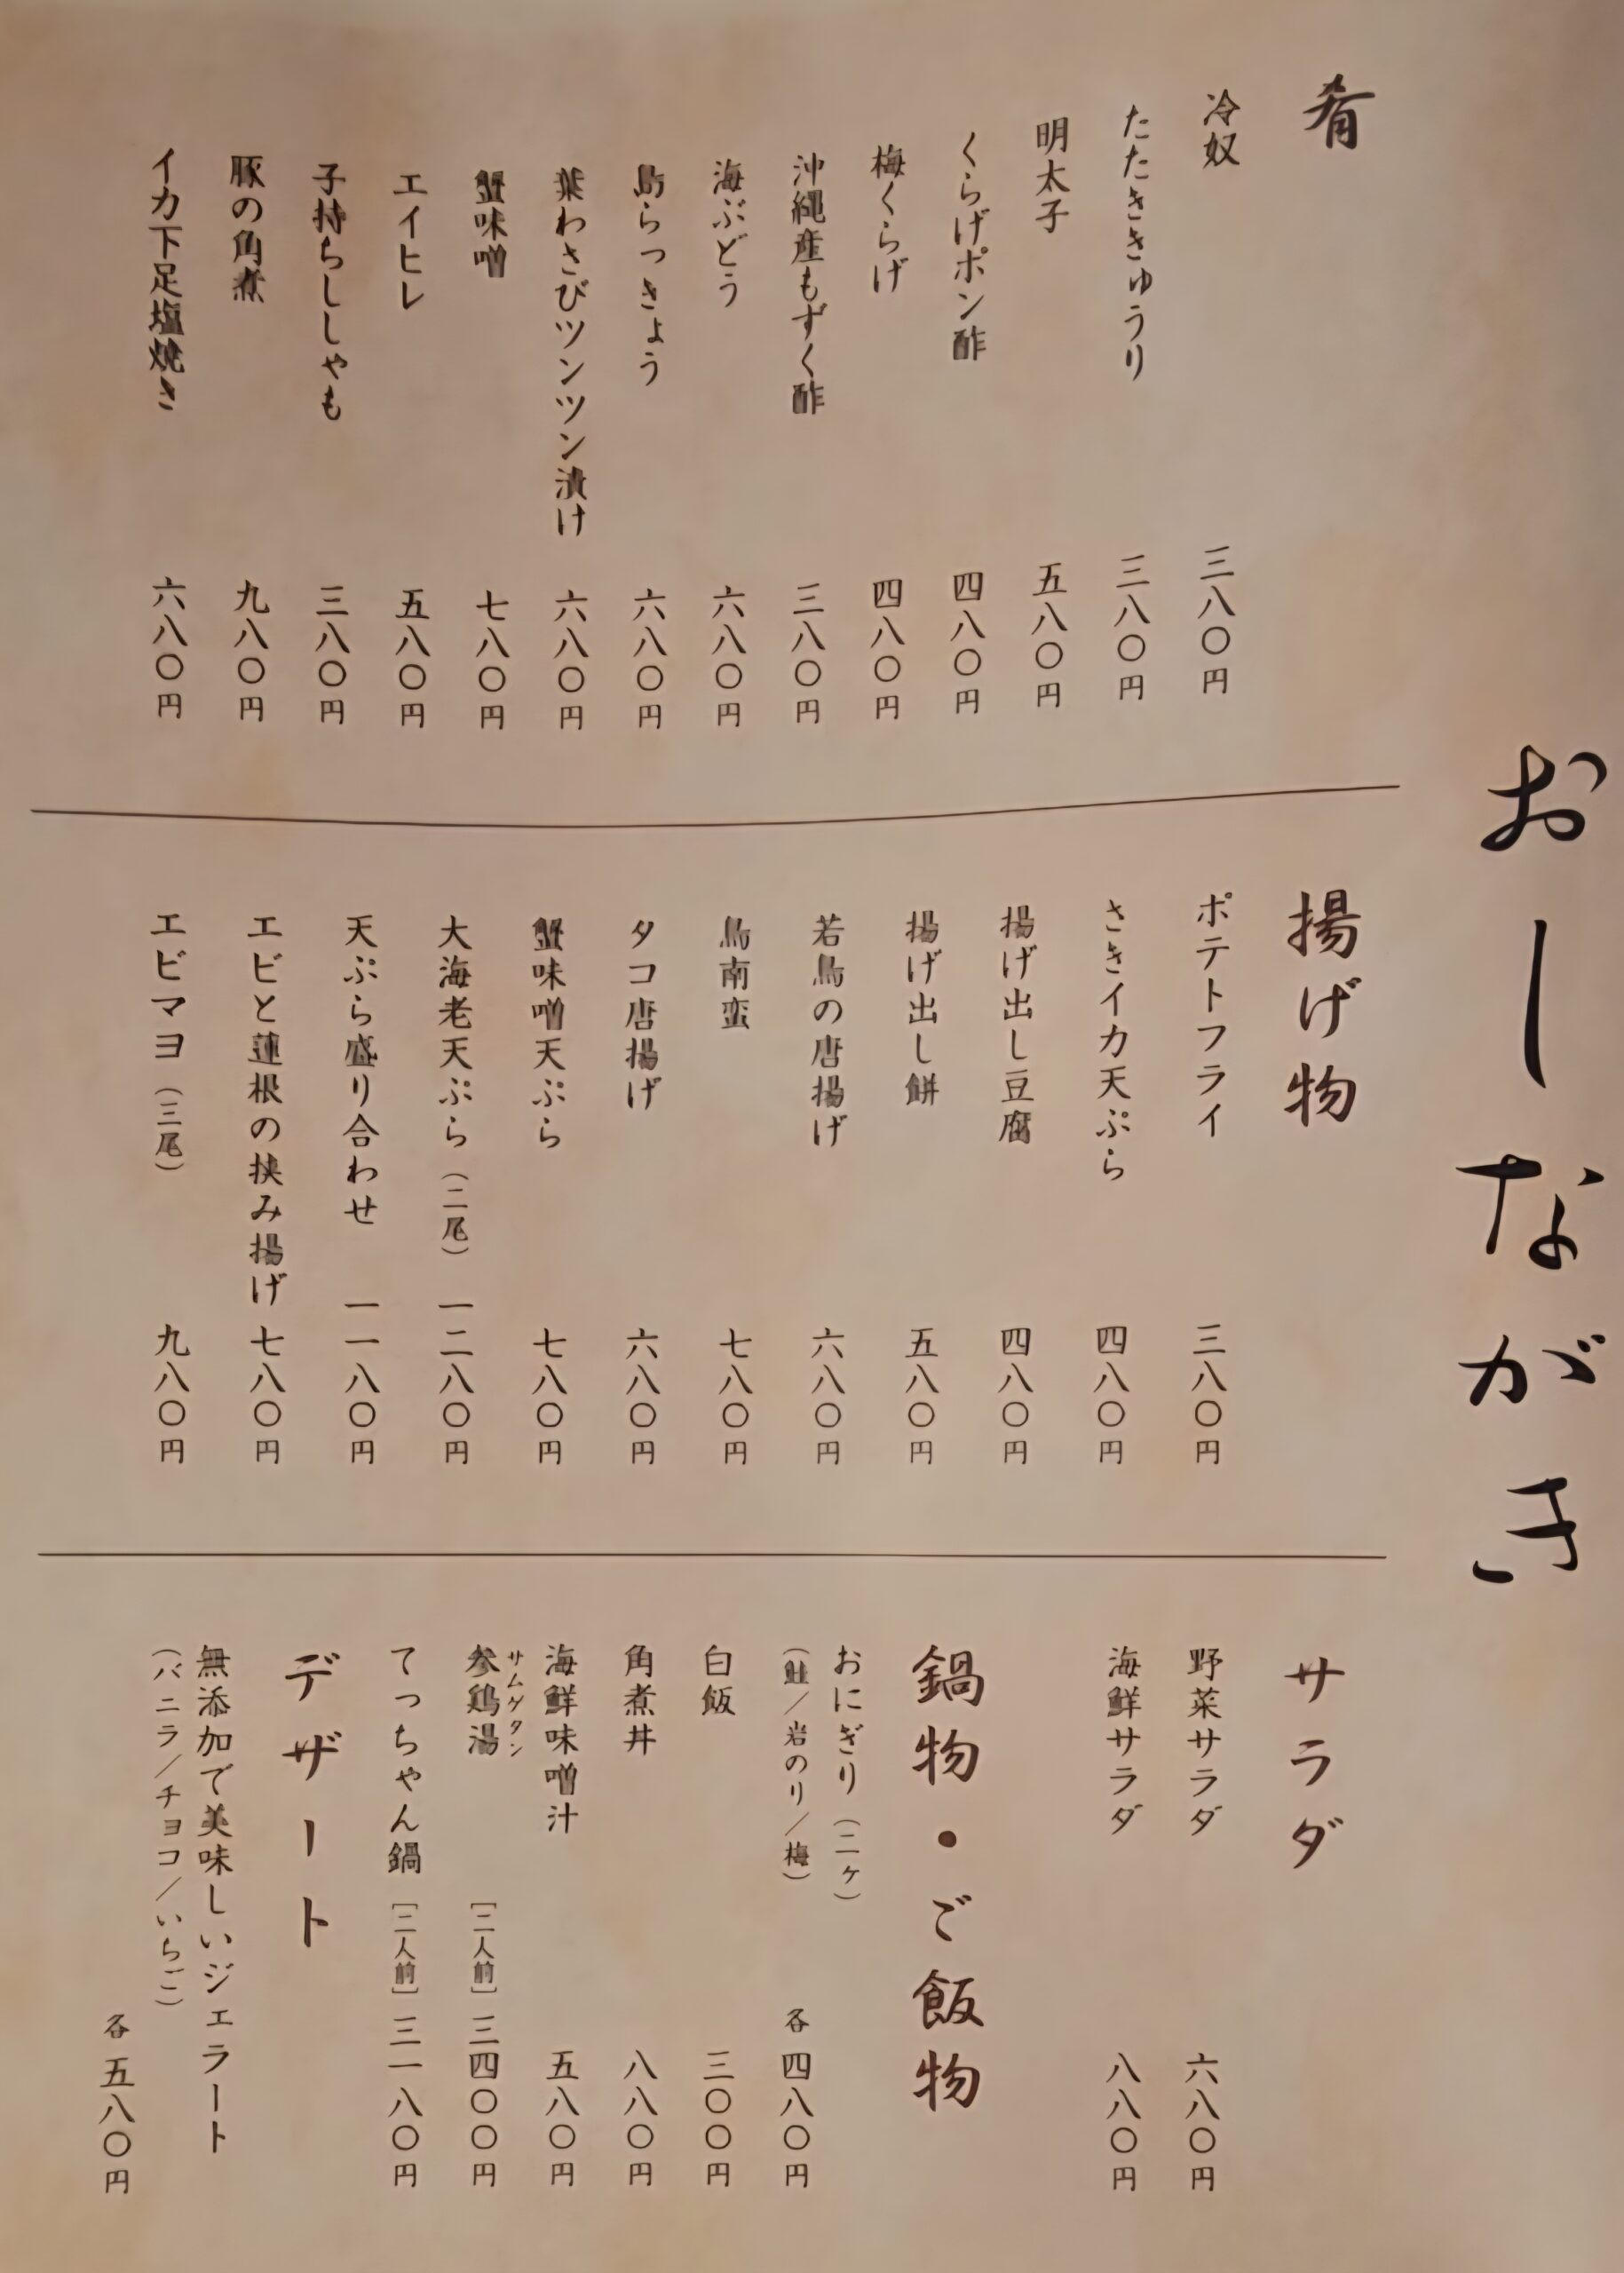 おしながき
肴
冷奴 三八〇円
たたききゅうり 三八〇円
明太子 五八〇円
くらげポン酢 四八〇円
梅くらげ 四八〇円
沖縄産もずく酢 三八〇円
海ぶどう 六八〇円
島らっきょう 六八〇円
葉わさびツンツン漬け 六八〇円
蟹味噌 七八〇円
エイヒレ 五八〇円
子持ちししゃも 三八〇円
豚の角煮 九八〇円
イカ下足塩焼き 六八〇円
揚げ物
ポテトフライ 三八〇円
さきイカ天ぷら 四八〇円
揚げ出し豆腐 四八〇円
揚げ出し餅 五八〇円
若鳥の唐揚げ 六八〇円
鳥南蛮 七八〇円
タコ唐揚げ 六八〇円
蟹味噌天ぷら 七八〇円
大海老天ぷら（二尾） 一二八〇円
天ぷら盛り合わせ 一一八〇円
エビと蓮根の挟み揚げ 七八〇円
エビマヨ（三尾） 九八〇円
サラダ
野菜サラダ 六八〇円
海鮮サラダ 八八〇円
鍋物・ご飯物
おにぎり（二ヶ）
（鮭／岩のり／梅） 各 四八〇円
白飯 三〇〇円
角煮丼 八八〇円
海鮮味噌汁 五八〇円
サムゲタン
参鶏湯 ［二人前］ 三四〇〇円
てっちゃん鍋 ［二人前］ 三一八〇円
デザート
無添加で美味しいジェラート
（バニラ／チョコ／いちご）
各 五八〇円